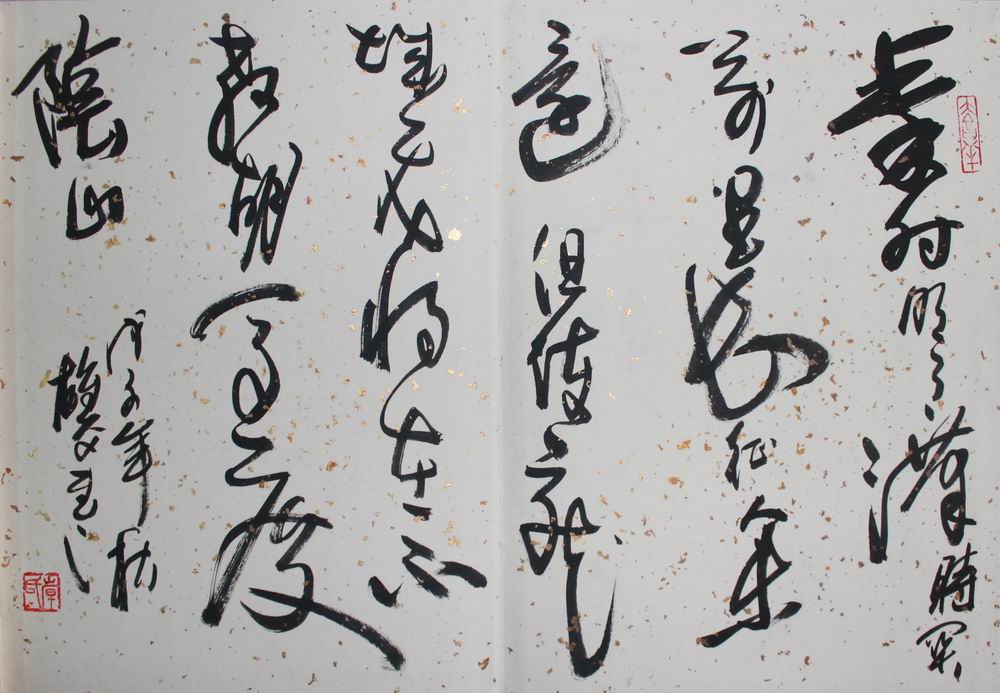 秦时明月漢時関
萬里长征人未
還但使龍
城飛将在不
教胡马度
陰山
戊子年秋